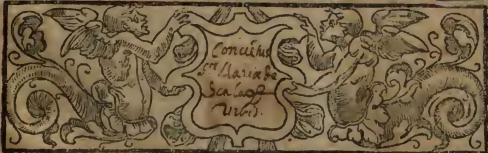 Conuētus
Stæ Mariæ de
Scala
Urbis.